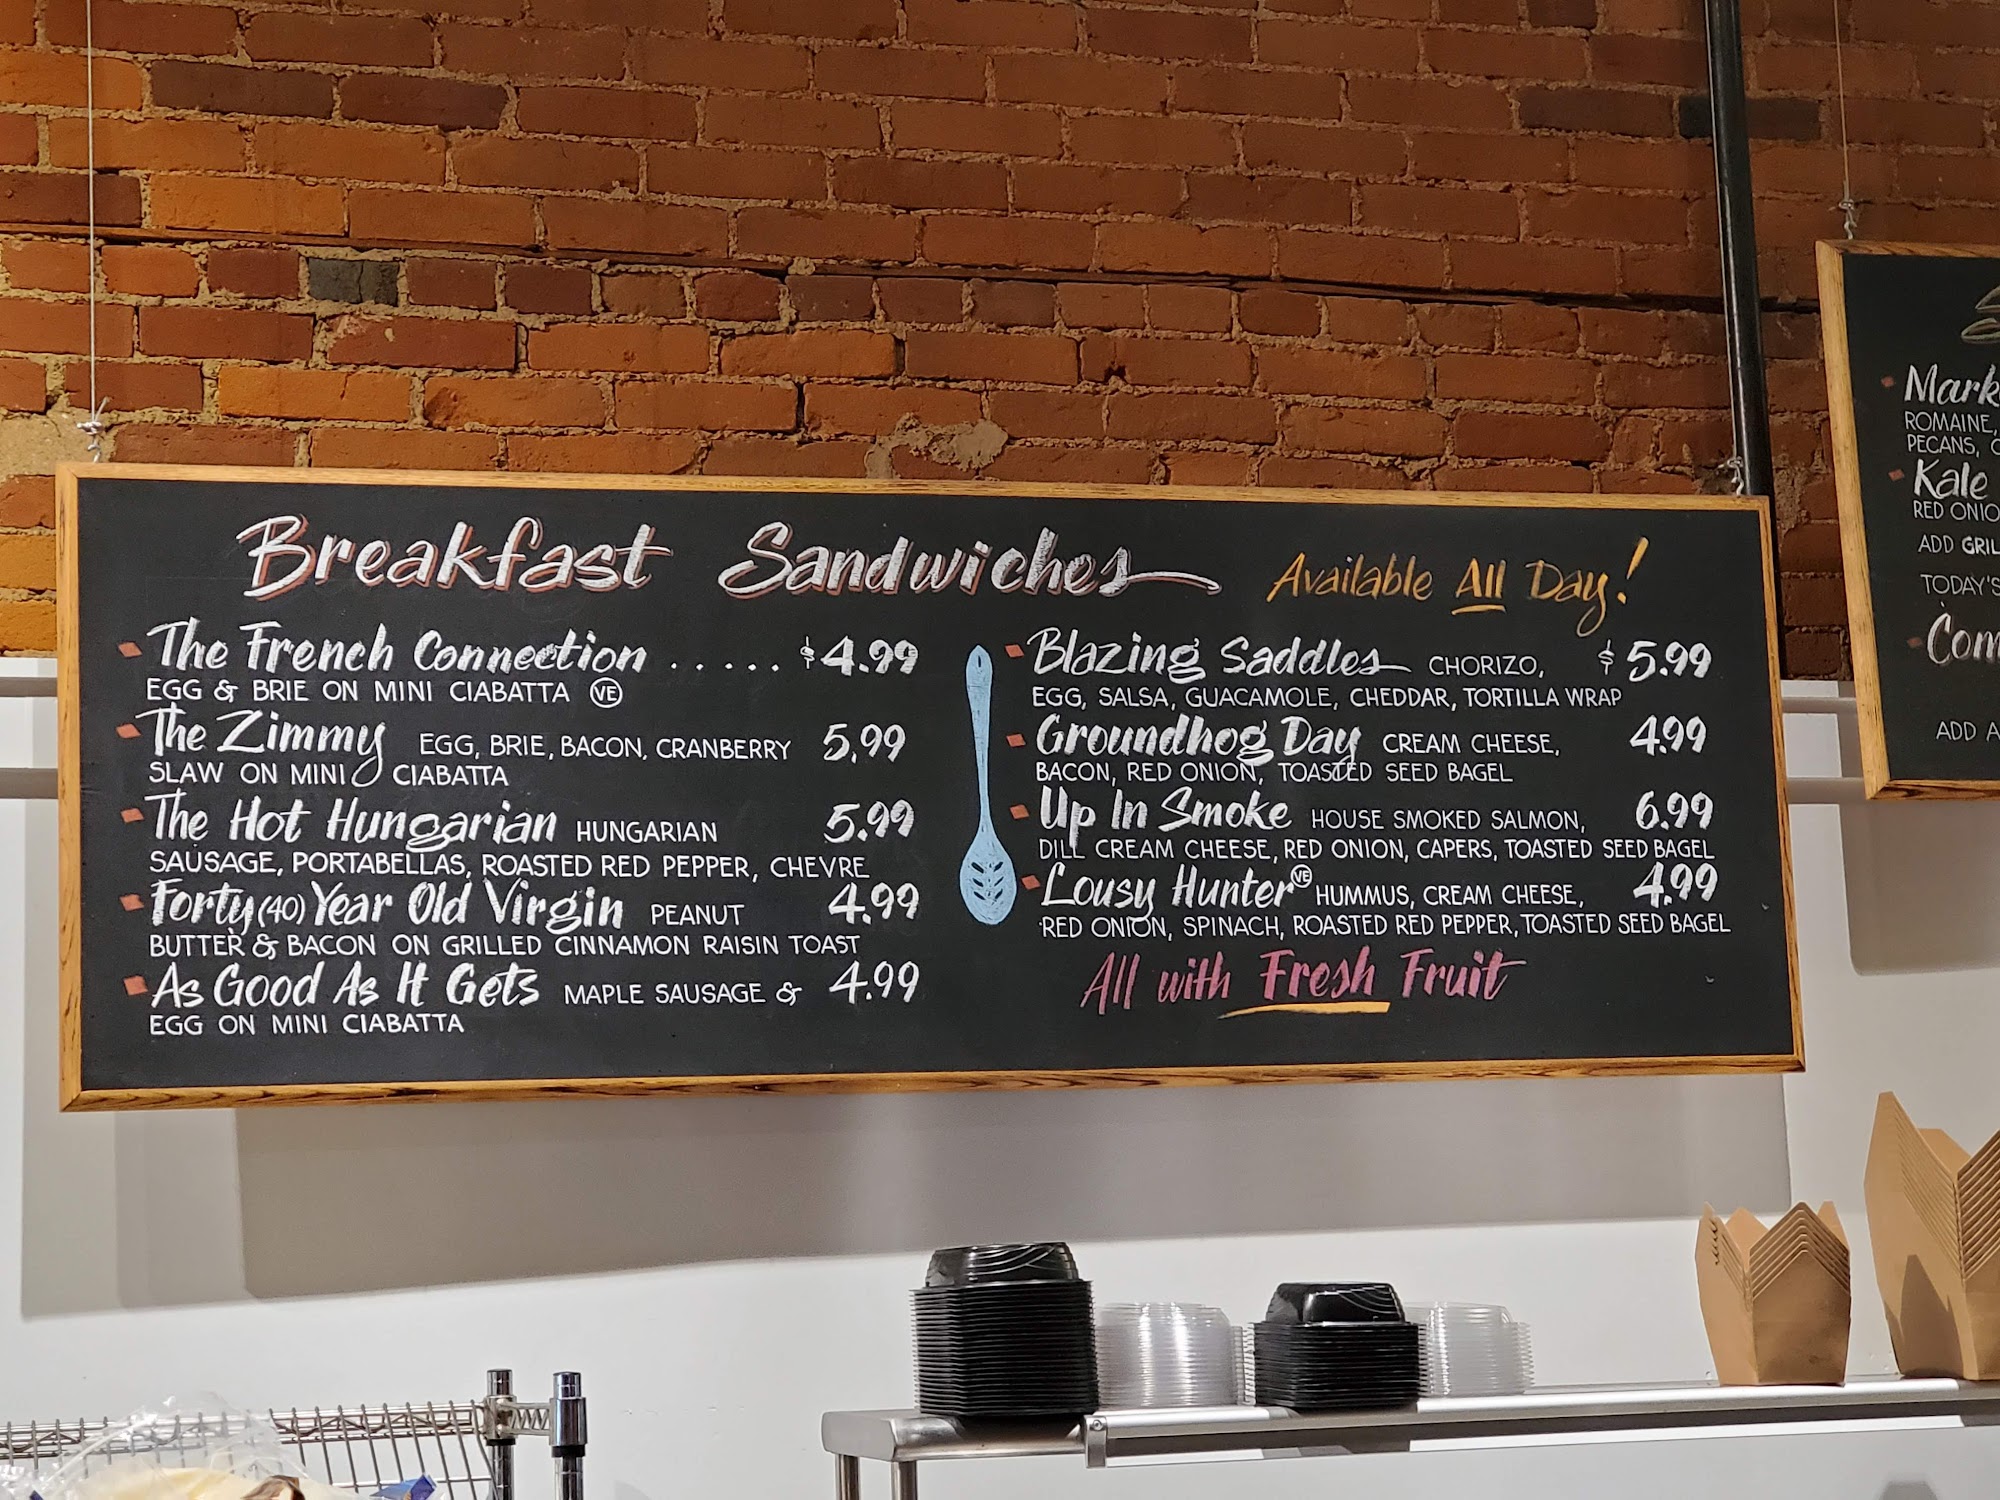 Breakfast Sandwiches Available All Day!
The French Connection ..... $4.99
EGG & BRIE ON MINI CIABATTA VE
The Zimmy EGG, BRIE, BACON, CRANBERRY 5.99
SLAW ON MINI CIABATTA
The Hot Hungarian HUNGARIAN 5.99
SAUSAGE, PORTABELLAS, ROASTED RED PEPPER, CHEVRE
Forty (40) Year Old Virgin PEANUT 4.99
BUTTER & BACON ON GRILLED CINNAMON RAISIN TOAST
As Good As It Gets MAPLE SAUSAGE & 4.99
EGG ON MINI CIABATTA
Blazing Saddles CHORIZO, $5.99
EGG, SALSA, GUACAMOLE, CHEDDAR, TORTILLA WRAP
Groundhog Day CREAM CHEESE, 4.99
BACON, RED ONION, TOASTED SEED BAGEL
Up In Smoke HOUSE SMOKED SALMON, 6.99
DILL CREAM CHEESE, RED ONION, CAPERS, TOASTED SEED BAGEL
Lousy Hunter VE HUMMUS, CREAM CHEESE, 4.99
RED ONION, SPINACH, ROASTED RED PEPPER, TOASTED SEED BAGEL
All with Fresh Fruit
ROMAINE,
PECANS,
Kale
RED
ADD
TODAY'S
ADD